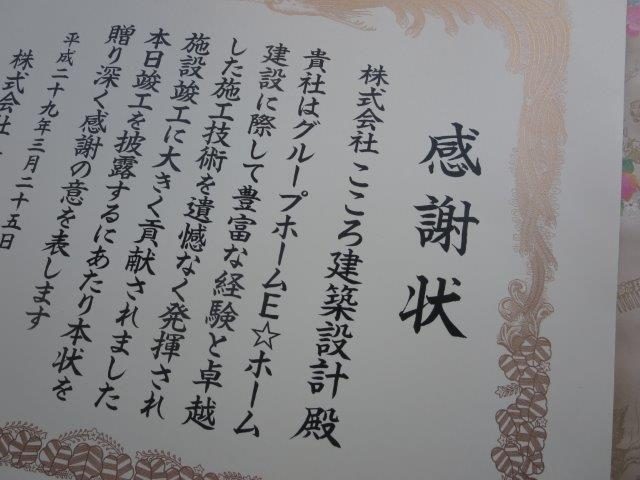 感謝状
株式会社 こころ建築設計 殿
貴社はグループホームE☆ホーム
建設に際して豊富な経験と卓越
した施工技術を遺憾なく発揮され
施設竣工に大きく貢献されました
本日竣工を披露するにあたり本状を
贈り深く感謝の意を表します
平成二十九年三月二十五日
株式会社